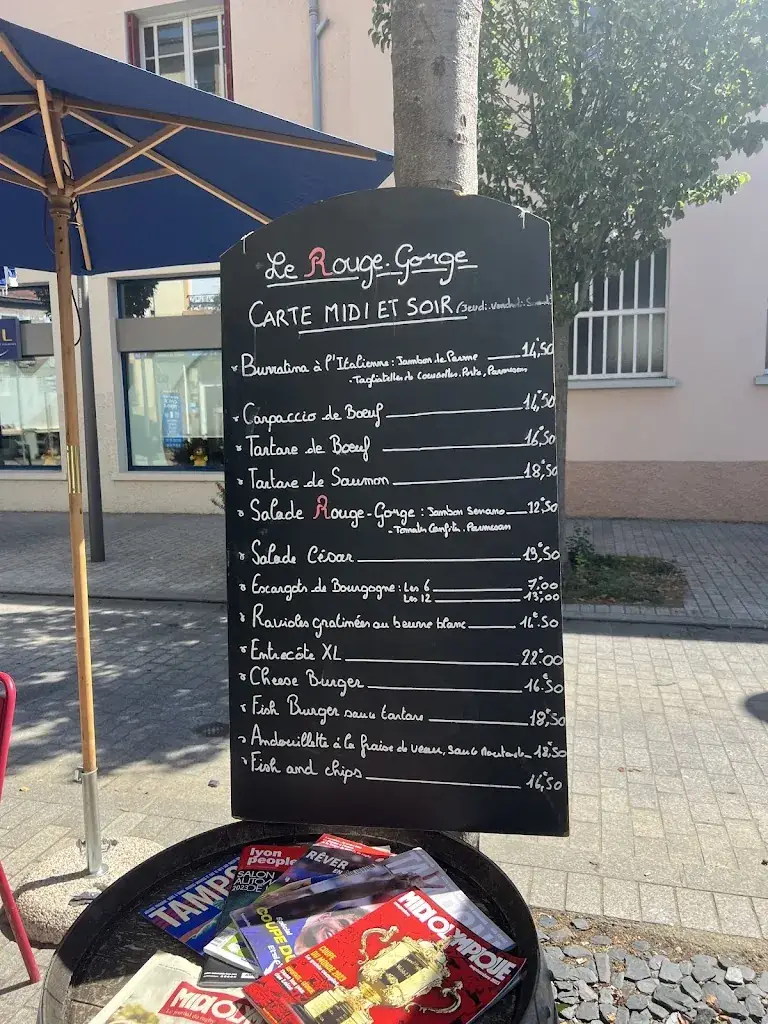 Le Rouge-Gorge
CARTE MIDI ET SOIR (Jeudi. Vendredi. Samedi
Burratina à l'Italienne : Jambon de Parme 14,50
- Tagliatelles de Courgettes. Pesto, Parmesan
Carpaccio de Boeuf 14,50
Tartare de Boeuf 16,50
Tartare de Saumon 18,50
Salade Rouge-Gorge : Jambon Serrano 12,50
- Tomates Confites. Parmesan
Salade César 19,50
Escargots de Bourgogne : Les 6 7,00
Les 12 13,00
Ravioles gratinées au beurre blanc 16.50
Entrecôte XL 22.00
Cheese Burger 16.50
Fish Burger sauce tartare 18,50
Andouillette à la fraise de veau, sauce Moutarde 18,50
Fish and chips 16,50
lyon
people
SALON
AUTO
2023
RÊVER
TAMPS
Spécial
COUPE D
MIDI OLYMPIQUE
COUPE
DU MONDE 2023
MIDI OL